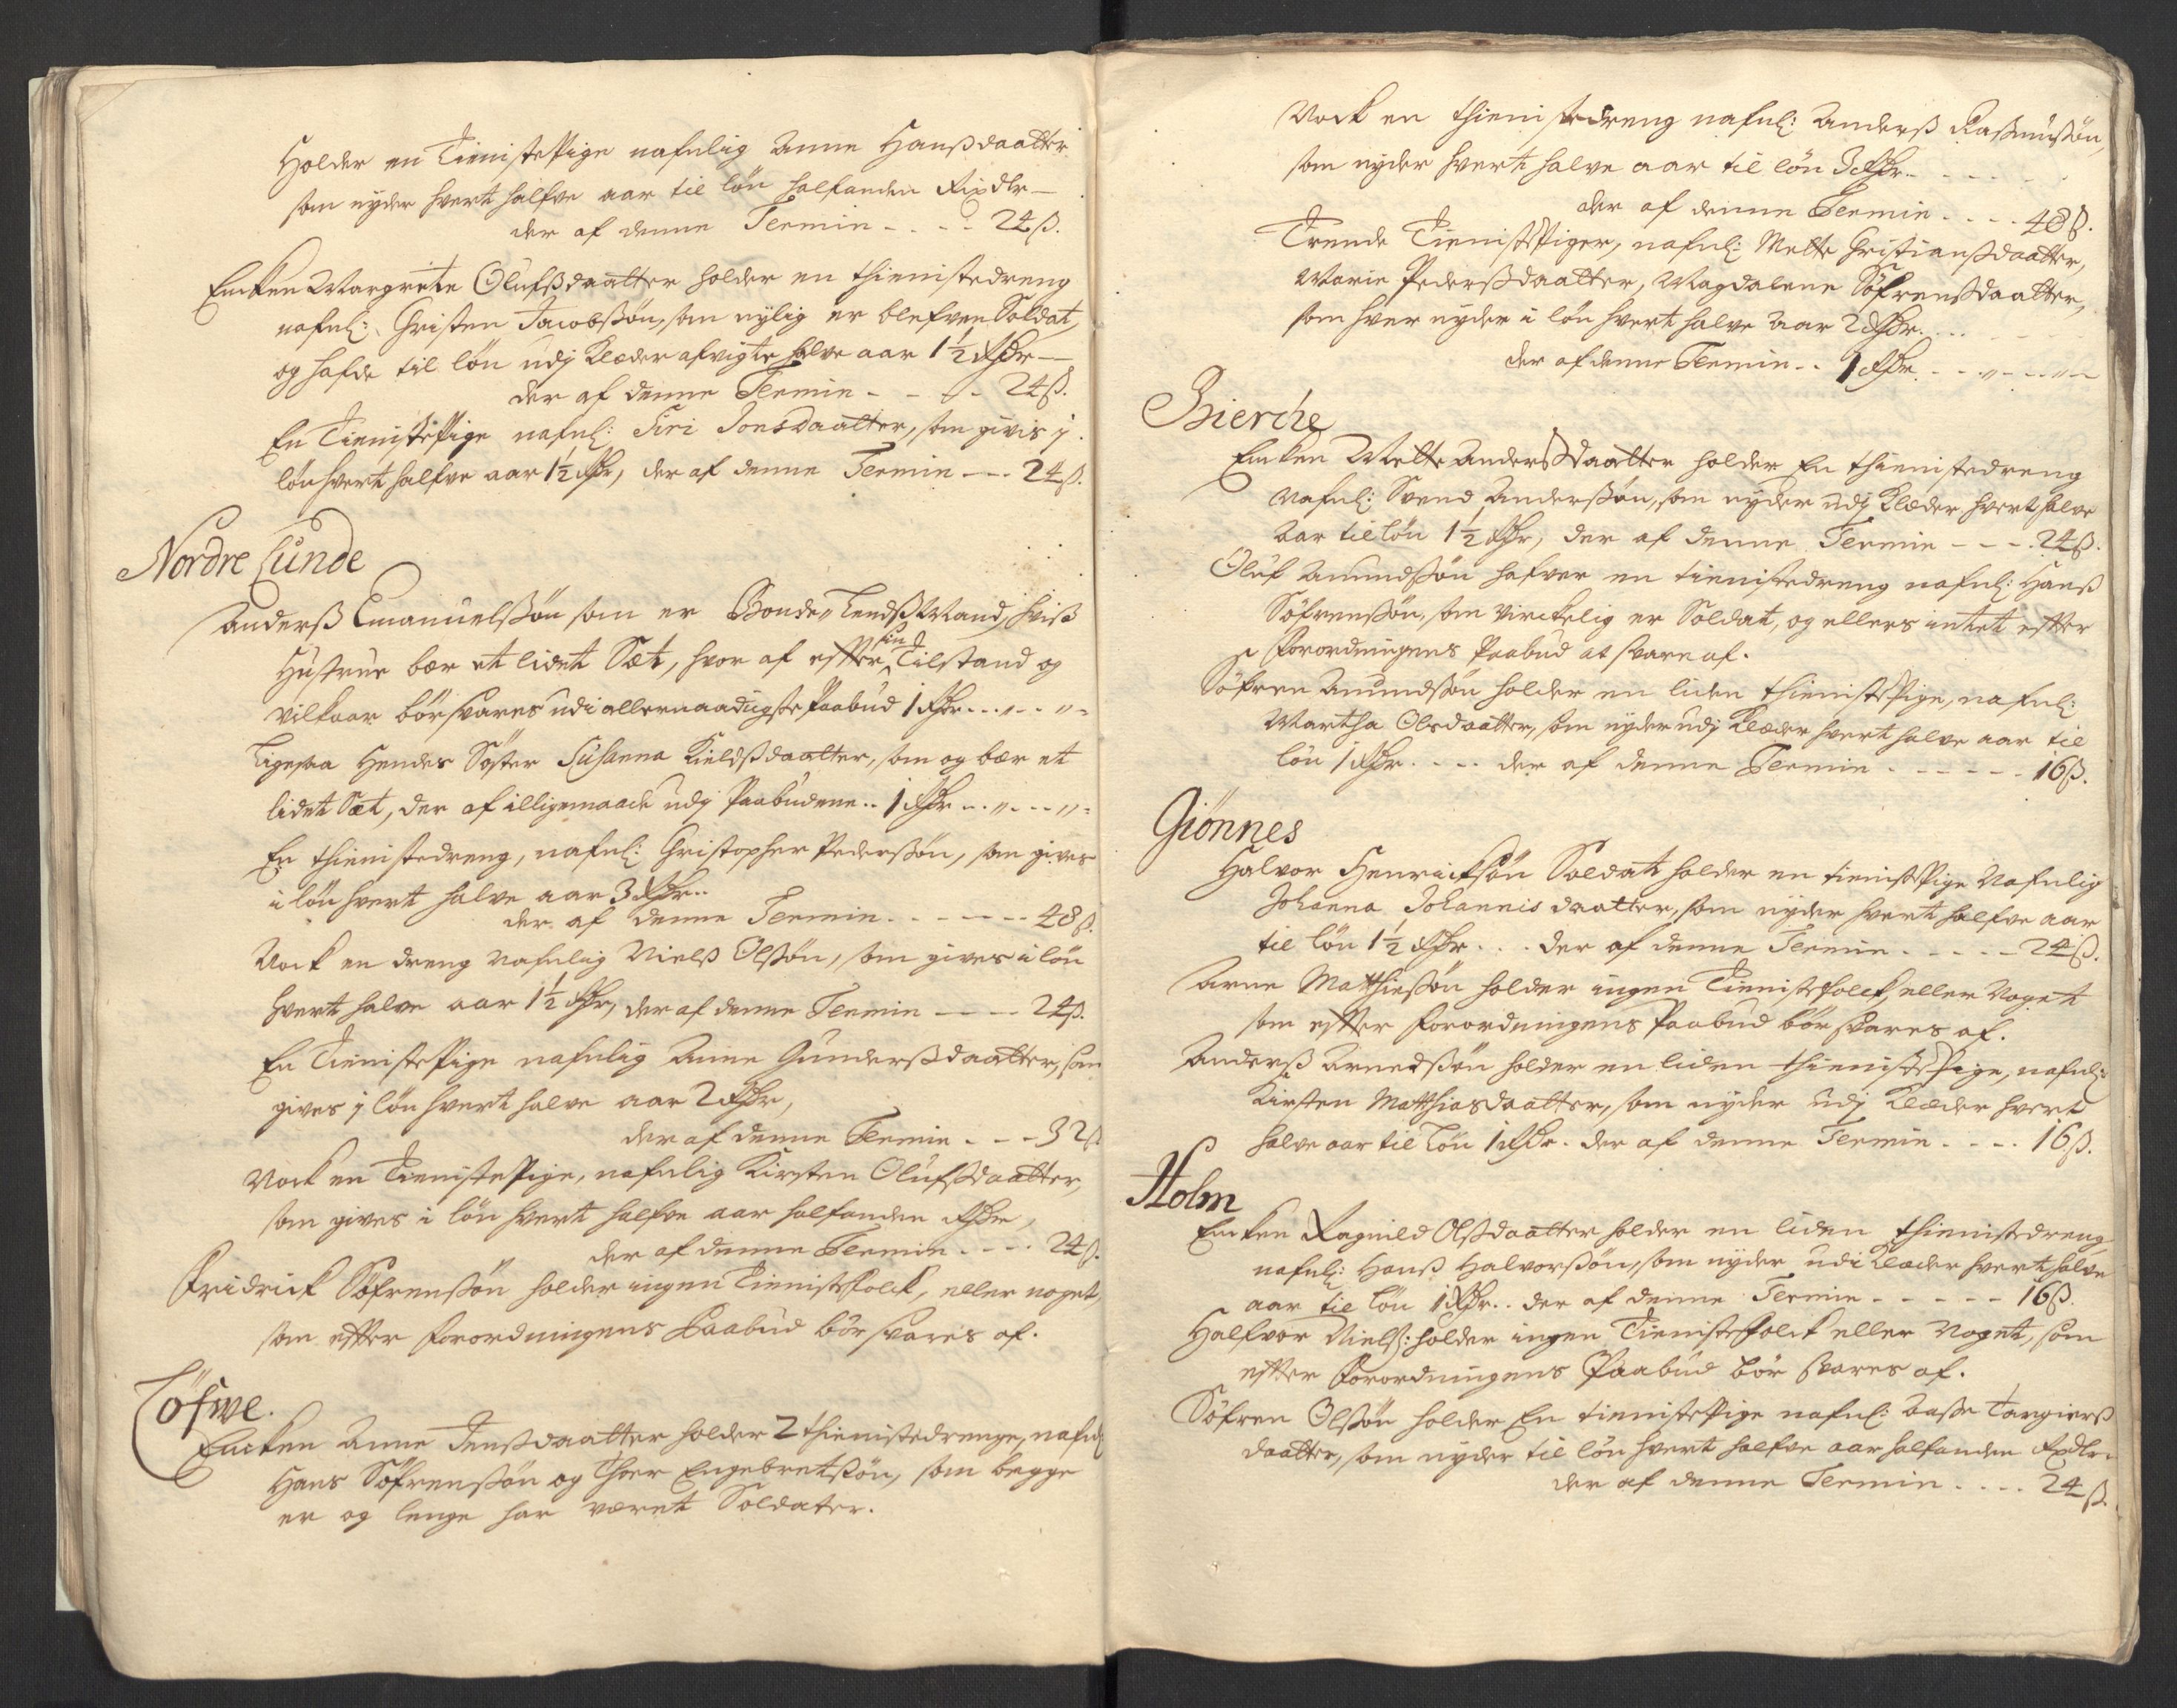 Holder en Tieniste Pige nafnlig Anne Hanßdaatter
som nyder hvert halfve aar til løn halfanden Rixdlr
der af denne Termin - - - - 24 ß.
Encken Margrete Olufßdaatter holder en thienistedreng
nafnl: Christen Jacobßøn, som nylig er blefven Soldat,
og hafde til løn udj Klæder afvigte halve aar 1½ Rdr
der af denne Termin - - - - 24 ß.
En Tieniste Pige nafnl: Siri Jonsdaatter, som givis j
løn hvert halfve aar 1½ Rdr, der af denne Termin - - - 24 ß.
Nordre Lunde
Anderß Emanuelßøn som er Bonde Lendßmand, hviß
Hustrue bær et lidet Sæt, hvor af effter sin Tilstand og
vilkaar bør svares udi allernaadigste Paabud 1 Rdr - - „ - - „ -
Ligesaa Hendes Søster Susanna Kieldßdaatter, som og bær et
lidet Sæt, der af illigemaade udj Paabudene - - 1 Rdr - - „ - - - „ -
En thienistedreng, nafnl: Christopher Pederßøn, som gives
i løn hvert halve aar 3 Rdr - -
der af denne Termin - - - - - - 48 ß.
Nock en dreng nafnlig Nielß Olßøn, som gives i løn
hvert halve aar 1½ Rdr, der af denne Termin - - - - 24 ß.
En Tieniste Pige nafnlig Anne Gunderßdaatter, som
gives j løn hvert halve aar 2 Rdr,
der af denne Termin - - - 32 ß
Nock en Tieniste Pige, nafnlig Kirsten Olufßdaatter,
som gives i løn hvert halfve aar halfanden Rdr,
der af denne Termin - - - - 24 ß.
Fridrick Søfrenßøn holder ingen Tienistefolck, eller noget,
som effter Forordningens Paabud bør svares af.
Tøfwe.
Encken Anne Jenßdaatter holder 2 thienistedrenge, nafnl
Hans Søfrenßøn og Thoer Engebretßøn, som begge
er og lenge har været Soldater.
Nock en thienistedreng nafnl: Anderß Raßmusßøn,
som nyder hvert halve aar til løn 3 Rdr - - - - -
der af denne Termin - - - - 48 ß.
Trende Tieniste Piger, nafnl: Mette Christianßdaatter,
Marie Pederßdaatter, Magdalene Søfrenßdaatter,
som hver nyder i løn hvert halve Aar 2 Rdr. - - -
der af denne Termin - - 1 Rdr - - „ - - - „ -
Bierche
Encken Mette Anderßdaatter holder En thienistedreng
Nafnl: Svend Anderßøn, som nyder udj Klæder hvert halve
Aar til løn 1½ Rdr, der af denne Termin - - - - 24 ß.
Oluf Amundßøn hafver en tienistedreng nafnl: Hanß
Søfrenßøn, som virckelig er Soldat, og ellers intet effter
Forordningens Paabud at svare af.
Søfren Amundßøn holder en liden thieniste Pige, nafnl:
Martha Olsdaatter, som nyder udj Klæder hvert halve aar til
løn 1 Rdr - - - - der af denne Termin - - - - - - 16 ß.
Giønnes
Halvor Henrichsøn Soldat holder en tieniste Pige Nafnlig
Johanna Johannis daatter, som nyder hvert halfve aar
til løn 1½ Rdr - - - der af denne Termin - - - - - 24 ß.
Arne Matthießøn holder ingen Tienistefolck, eller Noget
som effter Forordningens Paabud bør svares af.
Anderß Arnedßøn holder en liden thieniste Pige, nafnl:
Kirsten Matthiasdaatter, som nyder udj Klæder hvert
halve aar til løn 1 Rdr - der af denne Termin - - - - 16 ß.
Holm
Encken Ragnild Olßdaatter holder en liden thienistedreng
nafnl: Hanß Halvorßøn, som nyder udi Klæder hvert halve
aar til løn 1 Rdr - - der af denne Termin - - - - - 16 ß.
Halfvor Nielß: holder ingen Tienistefolck eller Noget, som
effter Forordningens Paabud bør svares af.
Søfren Olßøn holder En tieniste Pige nafnl: Aase Torgierß
daatter, som nyder til løn hvert halfve aar halfanden Rixdlr.
der af denne Termin - - - - 24 ß.